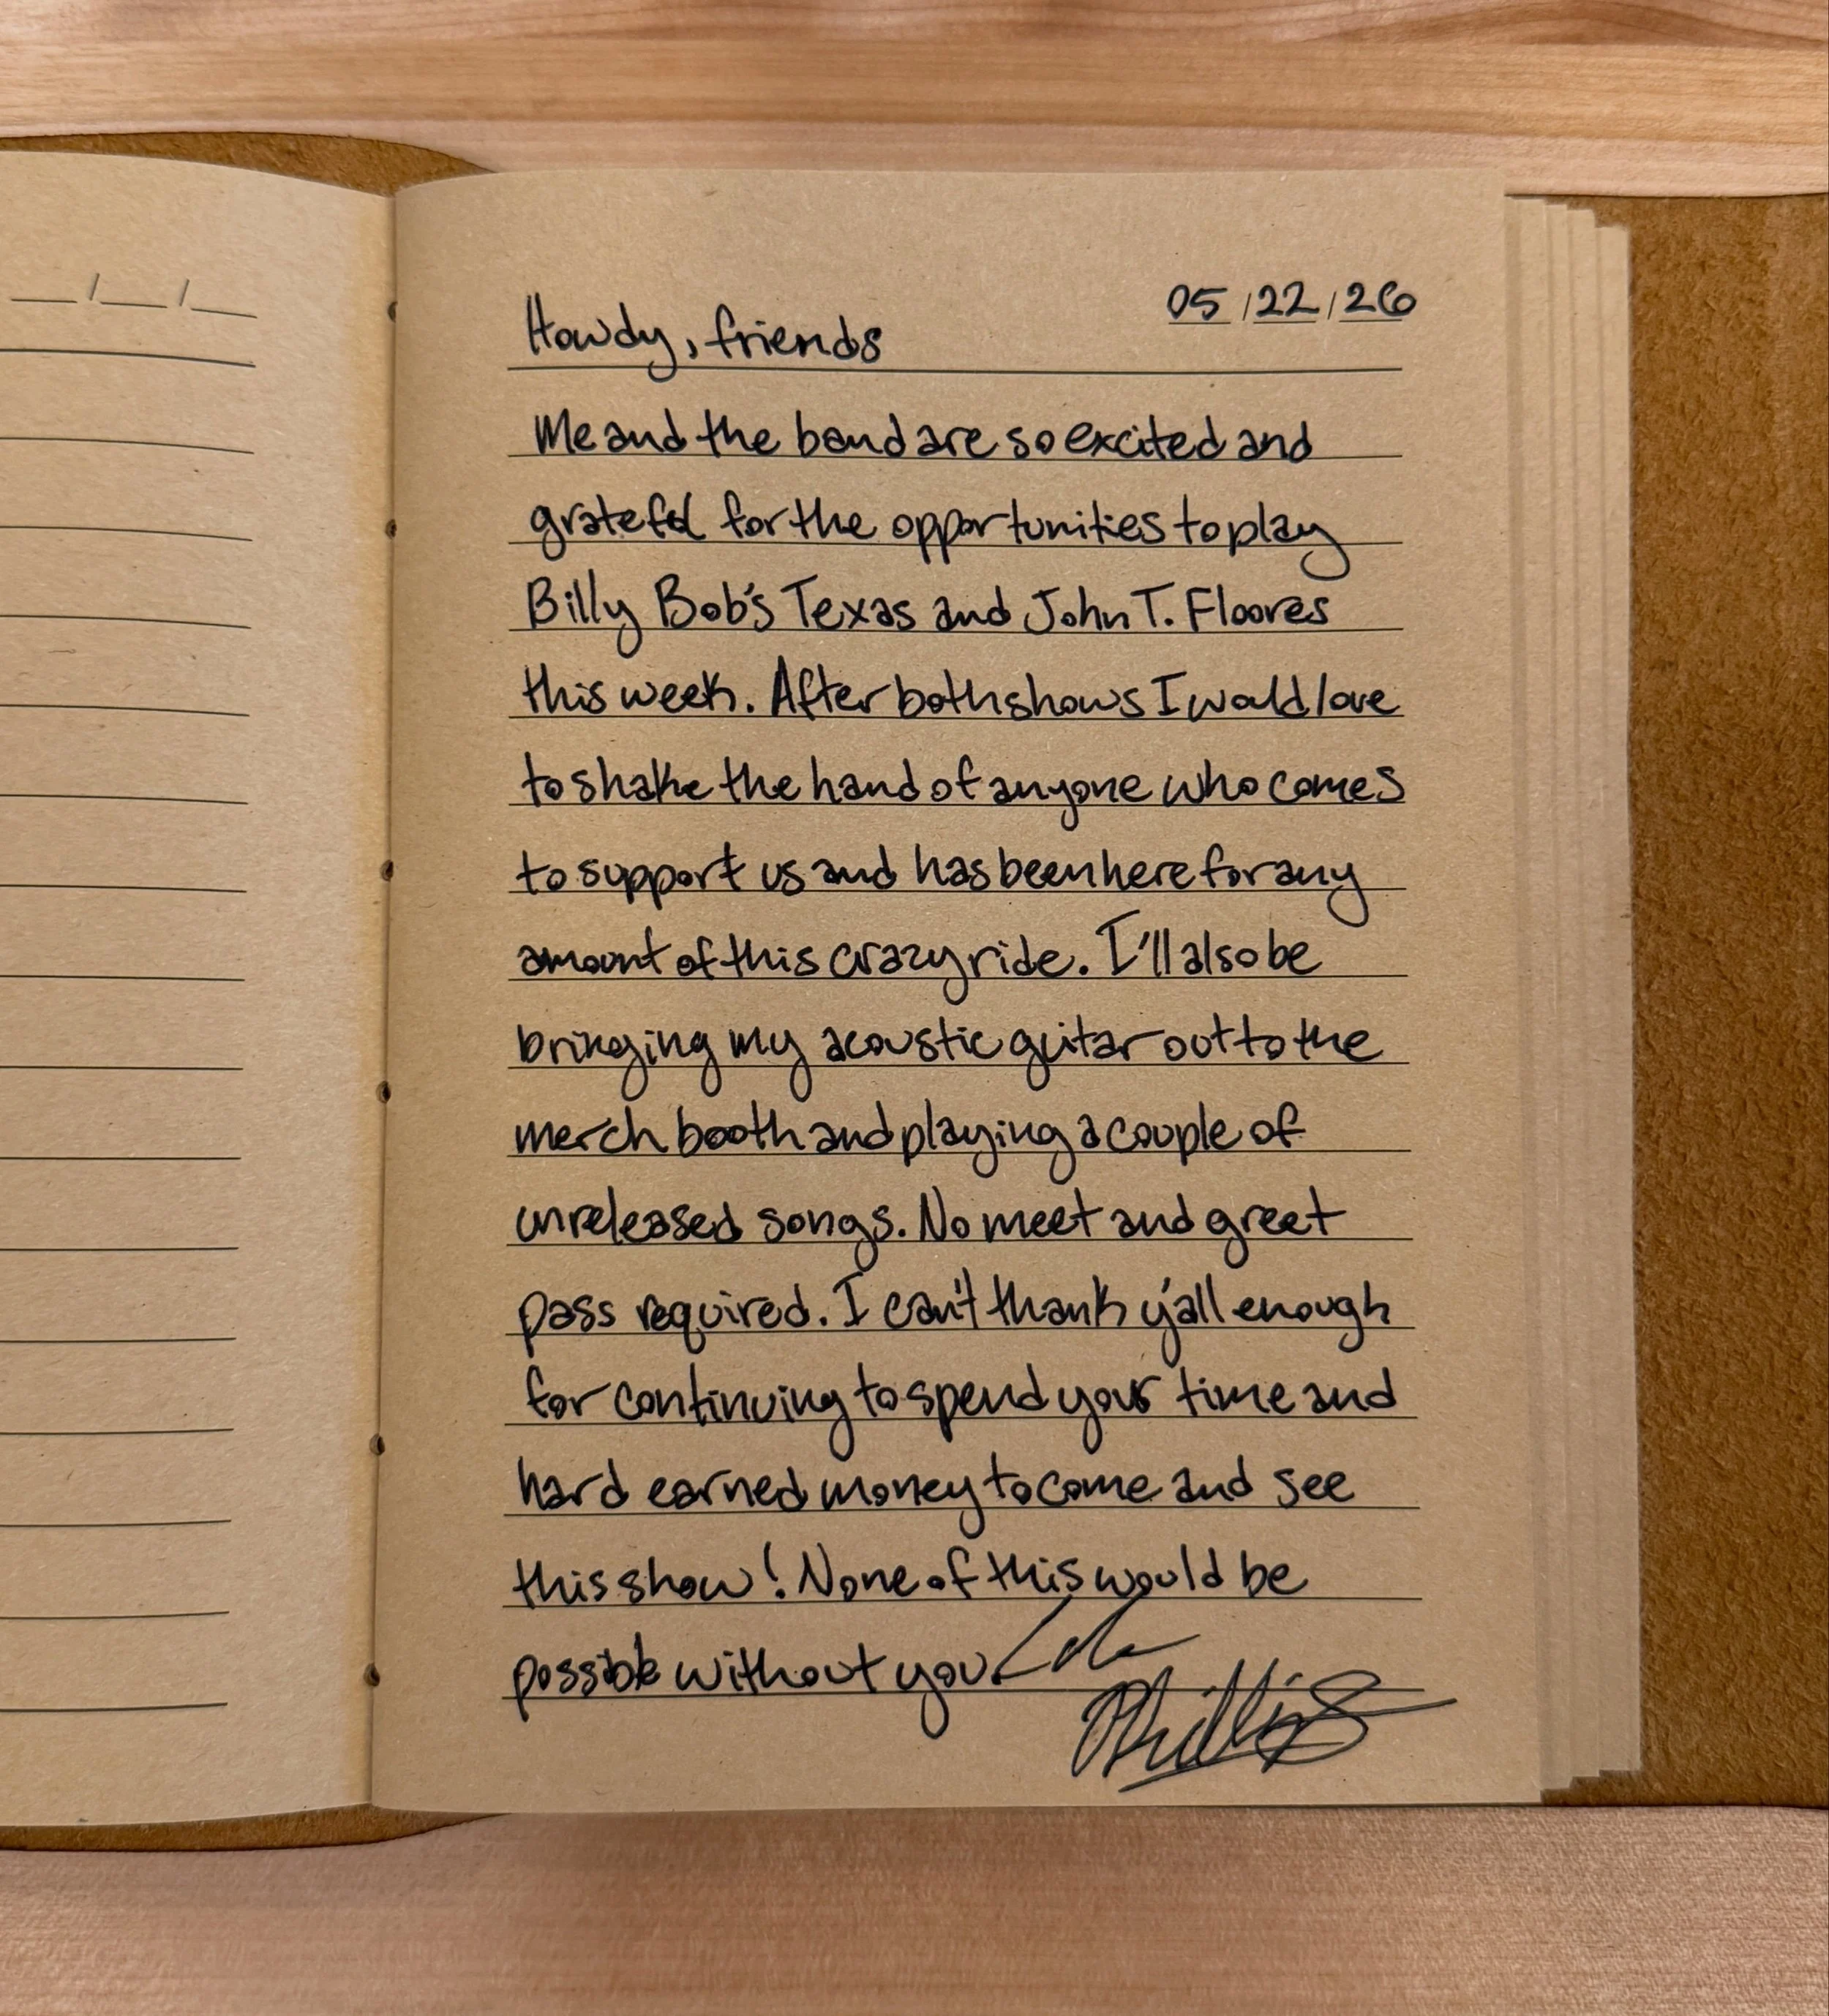 05/22/26
Howdy, friends
Me and the band are so excited and
grateful for the opportunities to play
Billy Bob's Texas and John T. Floores
this week. After both shows I would love
to shake the hand of anyone who comes
to support us and has been here for any
amount of this crazy ride. I'll also be
bringing my acoustic guitar out to the
merch booth and playing a couple of
unreleased songs. No meet and greet
pass required. I can't thank y'all enough
for continuing to spend your time and
hard earned money to come and see
this show! None of this would be
possible without you.
Phillips